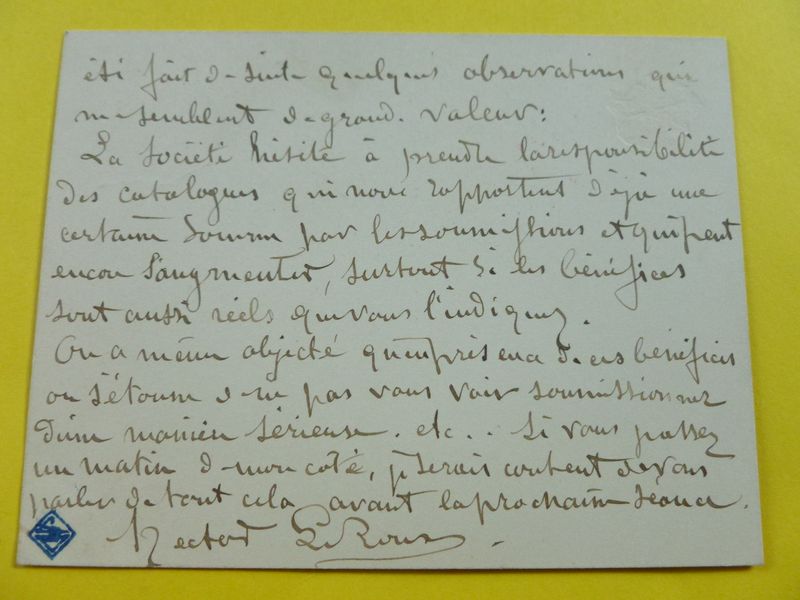 été fait de suite quelques observations qui
me semblent de grand. valeur:
La Société hésite à prendre la responsibilité
des catalogues qui nous rapportent déjà une
certaine somme par les soumissions et qui peut
encore s'augmenter, surtout si les bénéfices
sont aussi réels que vous l'indiquez.
On a même objecté qu'en présence de ces bénéfices
on s'étonne de ne pas vous voir soumissionner
d'une manière sérieuse. etc.. Si vous passez
un matin de mon coté, je serais content de vous
parler de tout cela avant la prochaine séance.
Hector Le Roux